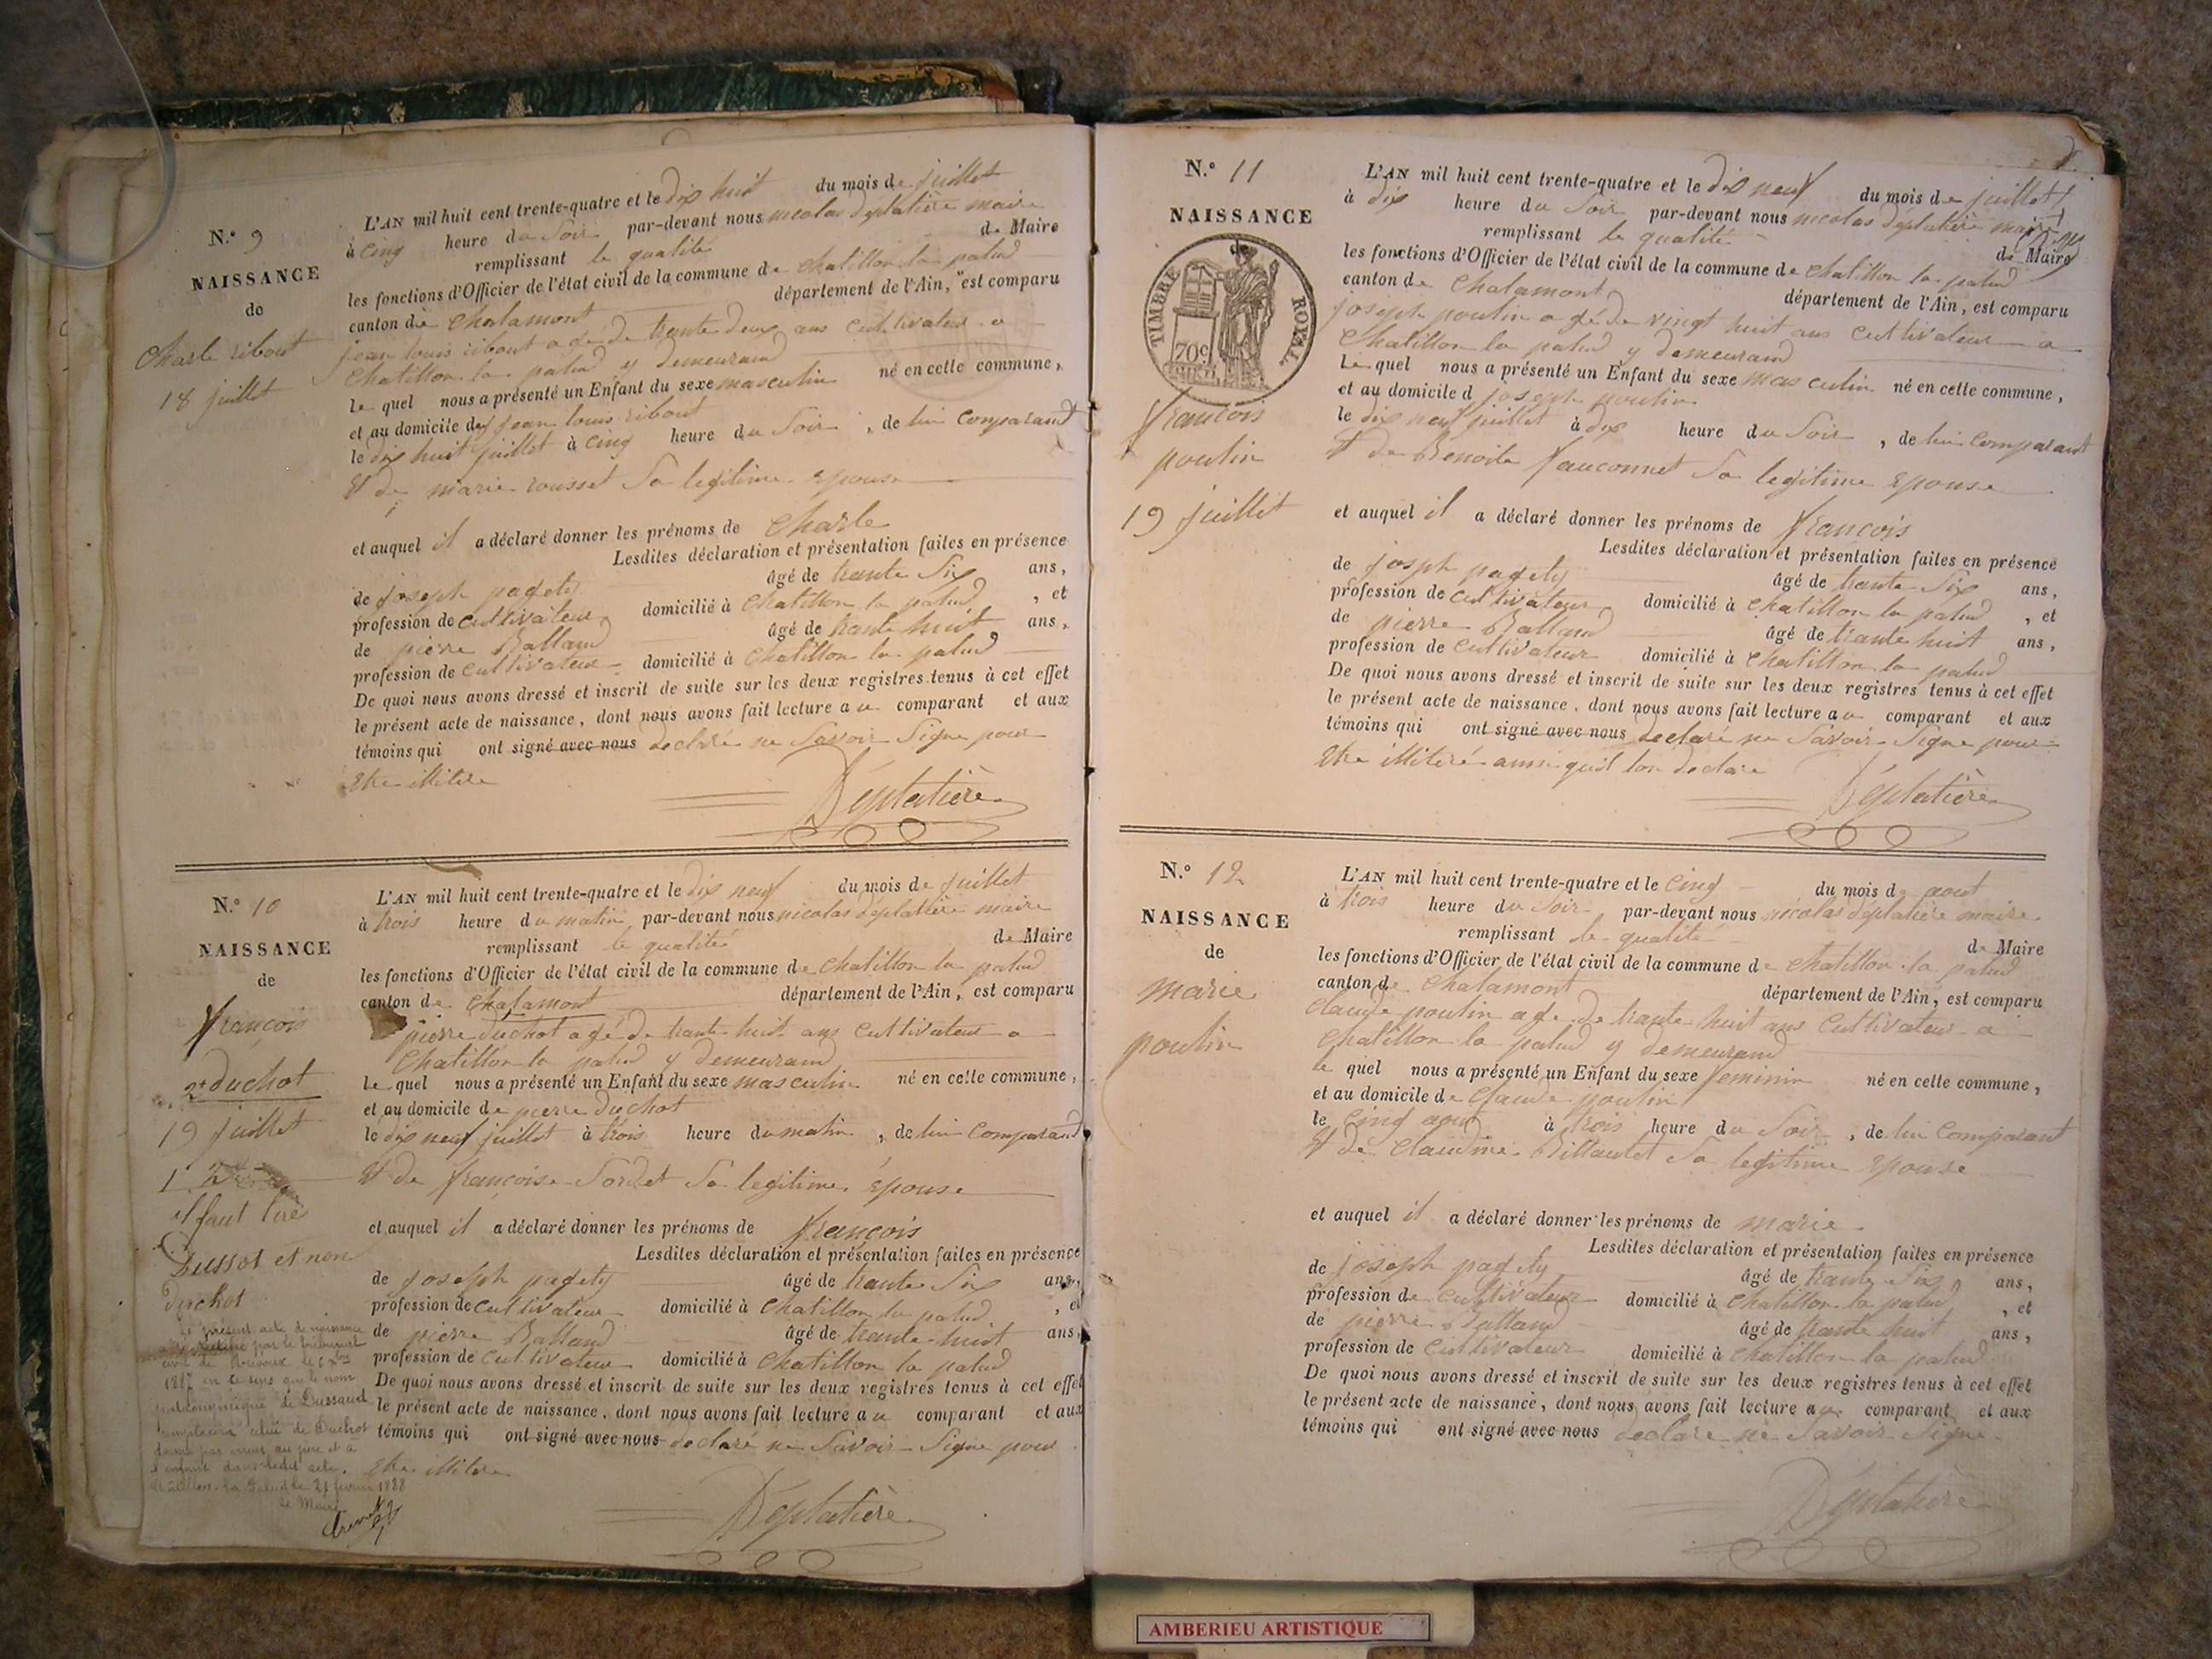 N.° 9
NAISSANCE
de
Charle ribout
18 juillet
L'AN mil huit cent trente-quatre et le dix huit du mois de juillet
à cinq heure du Soir par-devant nous nicolas déplatière maire
remplissant le qualité de Maire
les fonctions d'Officier de l'état civil de la commune de chatillon la palud
canton de Chalamont département de l'Ain, est comparu
jean louis ribout agé de trante deux ans cultivateur a
Chatillon la palud y demeurand
le quel nous a présenté un Enfant du sexe masculin né en celle commune,
et au domicile de jean louis ribout
le dix huit juillet à cinq heure du Soir, de lui Comparand
Et de marie rousset Sa legitime epouse
et auquel il a déclaré donner les prénoms de Charle
Lesdites déclaration et présentation faites en présence
de joseph pagety âgé de trante Six ans,
profession de cultivateur domicilié à Chatillon la palud, et
de pierre Balland âgé de trante huit ans,
profession de cultivateur domicilié à Chatillon la palud
De quoi nous avons dressé et inscrit de suite sur les deux registres tenus à cet effet
le présent acte de naissance, dont nous avons fait lecture au comparant et aux
témoins qui ont signé avec nous declaré ne Savoir Signe pour
Etre illitere
Déplatière
N.° 10
NAISSANCE
de
françois
duchot
19 juillet
il faut lire
Dussot et non
duchot
Le présent acte de naissance
rectifié par le tribunal
civil de Trévoux le
en ce sens que le nom
patronymique de Dussaud
remplacera celui de Duchot
donné par erreur au père et à
l'enfant dans ledit acte.
Châtillon-la-Palud le 21 février 1888
Le Maire
L'AN mil huit cent trente-quatre et le dix neuf du mois de juillet
à trois heure du matin par-devant nous nicolas déplatière maire
remplissant le qualité de Maire
les fonctions d'Officier de l'état civil de la commune de Chatillon la palud
canton de Chalamont département de l'Ain, est comparu
pierre duchot agé de trante huit ans cultivateur a
Chatillon la palud y demeurand
le quel nous a présenté un Enfant du sexe masculin né en celle commune,
et au domicile de pierre duchot
le dix neuf juillet à trois heure du matin, de lui Comparand
Et de françoise Sordet Sa legitime épouse
et auquel il a déclaré donner les prénoms de françois
Lesdites déclaration et présentation faites en présence
de joseph pagety âgé de trante Six ans,
profession de cultivateur domicilié à Chatillon la palud, et
de pierre Balland âgé de trante huit ans,
profession de cultivateur domicilié à Chatillon la palud
De quoi nous avons dressé et inscrit de suite sur les deux registres tenus à cet effet
le présent acte de naissance, dont nous avons fait lecture au comparant et aux
témoins qui ont signé avec nous declaré ne Savoir Signe pour
Etre illitere
Déplatière
N.° 11
NAISSANCE
TIMBRE ROYAL
70c
françois
poulin
19 juillet
L'AN mil huit cent trente-quatre et le dix neuf du mois de juillet
à dix heure du Soir par-devant nous nicolas déplatière maire
remplissant le qualité de Maire
les fonctions d'Officier de l'état civil de la commune de Chatillon la palud
canton de Chalamont département de l'Ain, est comparu
joseph poulin agé de vingt huit ans cultivateur a
Chatillon la palud y demeurand
Le quel nous a présenté un Enfant du sexe masculin né en celle commune,
et au domicile d joseph poulin
le dix neuf juillet à dix heure du Soir, de lui Comparant
Et de Benoite fauconnet Sa legitime epouse
et auquel il a déclaré donner les prénoms de françois
Lesdites déclaration et présentation faites en présence
de josph pagety âgé de trante Six ans,
profession de cultivateur domicilié à Chatillon la palud, et
de pierre Balland âgé de trante huit ans,
profession de cultivateur domicilié à Chatillon la palud
De quoi nous avons dressé et inscrit de suite sur les deux registres tenus à cet effet
le présent acte de naissance, dont nous avons fait lecture au comparant et aux
témoins qui ont signé avec nous declaré ne Savoir Signe pour
Etre illiteré ainsi quil lon declare
Déplatière
N.° 12
NAISSANCE
de
marie
poulin
L'AN mil huit cent trente-quatre et le Cinq du mois de aout
à trois heure du Soir par-devant nous nicolas déplatière maire
remplissant le qualité de Maire
les fonctions d'Officier de l'état civil de la commune de Chatillon la palud
canton de Chalamont département de l'Ain, est comparu
Claude poulin agé de trante huit ans cultivateur a
Chatillon la palud y demeurand
le quel nous a présenté un Enfant du sexe feminin né en celle commune,
et au domicile de Claude poulin
le Cinq aout à trois heure du Soir, de lui Comparant
Et de Claudine Billaudet Sa legitime epouse
et auquel il a déclaré donner les prénoms de marie
Lesdites déclaration et présentation faites en présence
de joseph pagety âgé de trante Six ans,
profession de cultivateur domicilié à Chatillon la palud, et
de pierre Balland âgé de trante huit ans,
profession de Cultivateur domicilié à Chatillon la palud
De quoi nous avons dressé et inscrit de suite sur les deux registres tenus à cet effet
le présent acte de naissance, dont nous avons fait lecture au comparant et aux
témoins qui ont signé avec nous declare ne Savoir Signe
Déplatière
AMBERIEU ARTISTIQUE